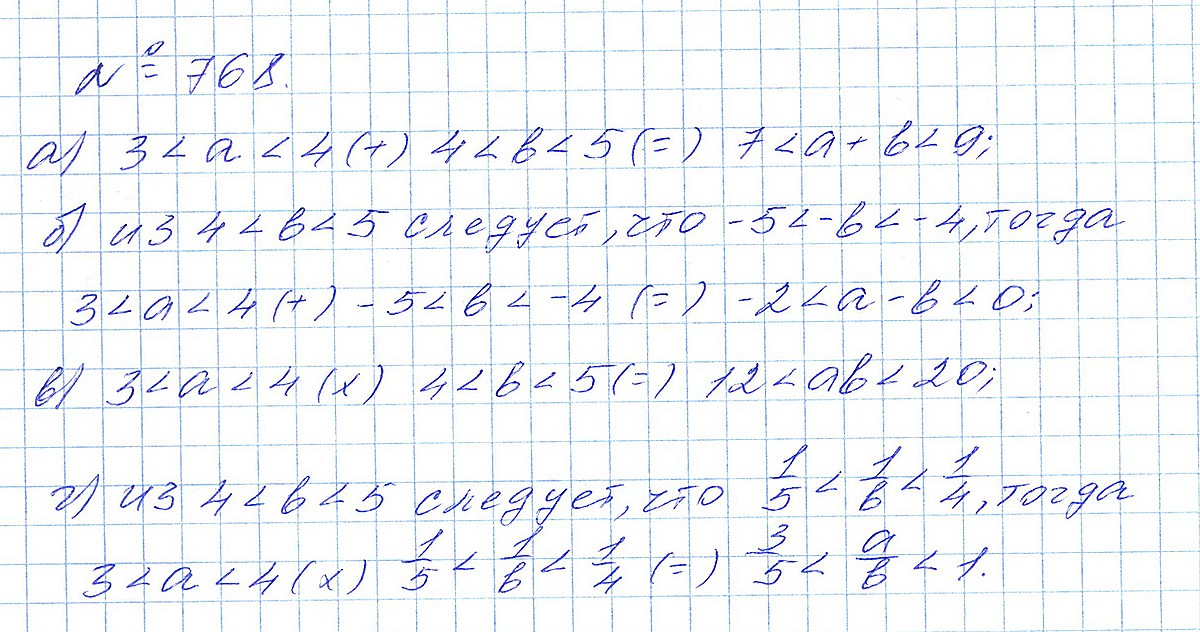 № 768.
а) 3 < a < 4 (+) 4 < b < 5 (=) 7 < a + b < 9;
б) из 4 < b < 5 следует, что -5 < -b < -4, тогда
3 < a < 4 (+) -5 < b < -4 (=) -2 < a - b < 0;
в) 3 < a < 4 (x) 4 < b < 5 (=) 12 < ab < 20;
г) из 4 < b < 5 следует, что 1/5 < 1/b < 1/4, тогда
3 < a < 4 (x) 1/5 < 1/b < 1/4 (=) 3/5 < a/b < 1.